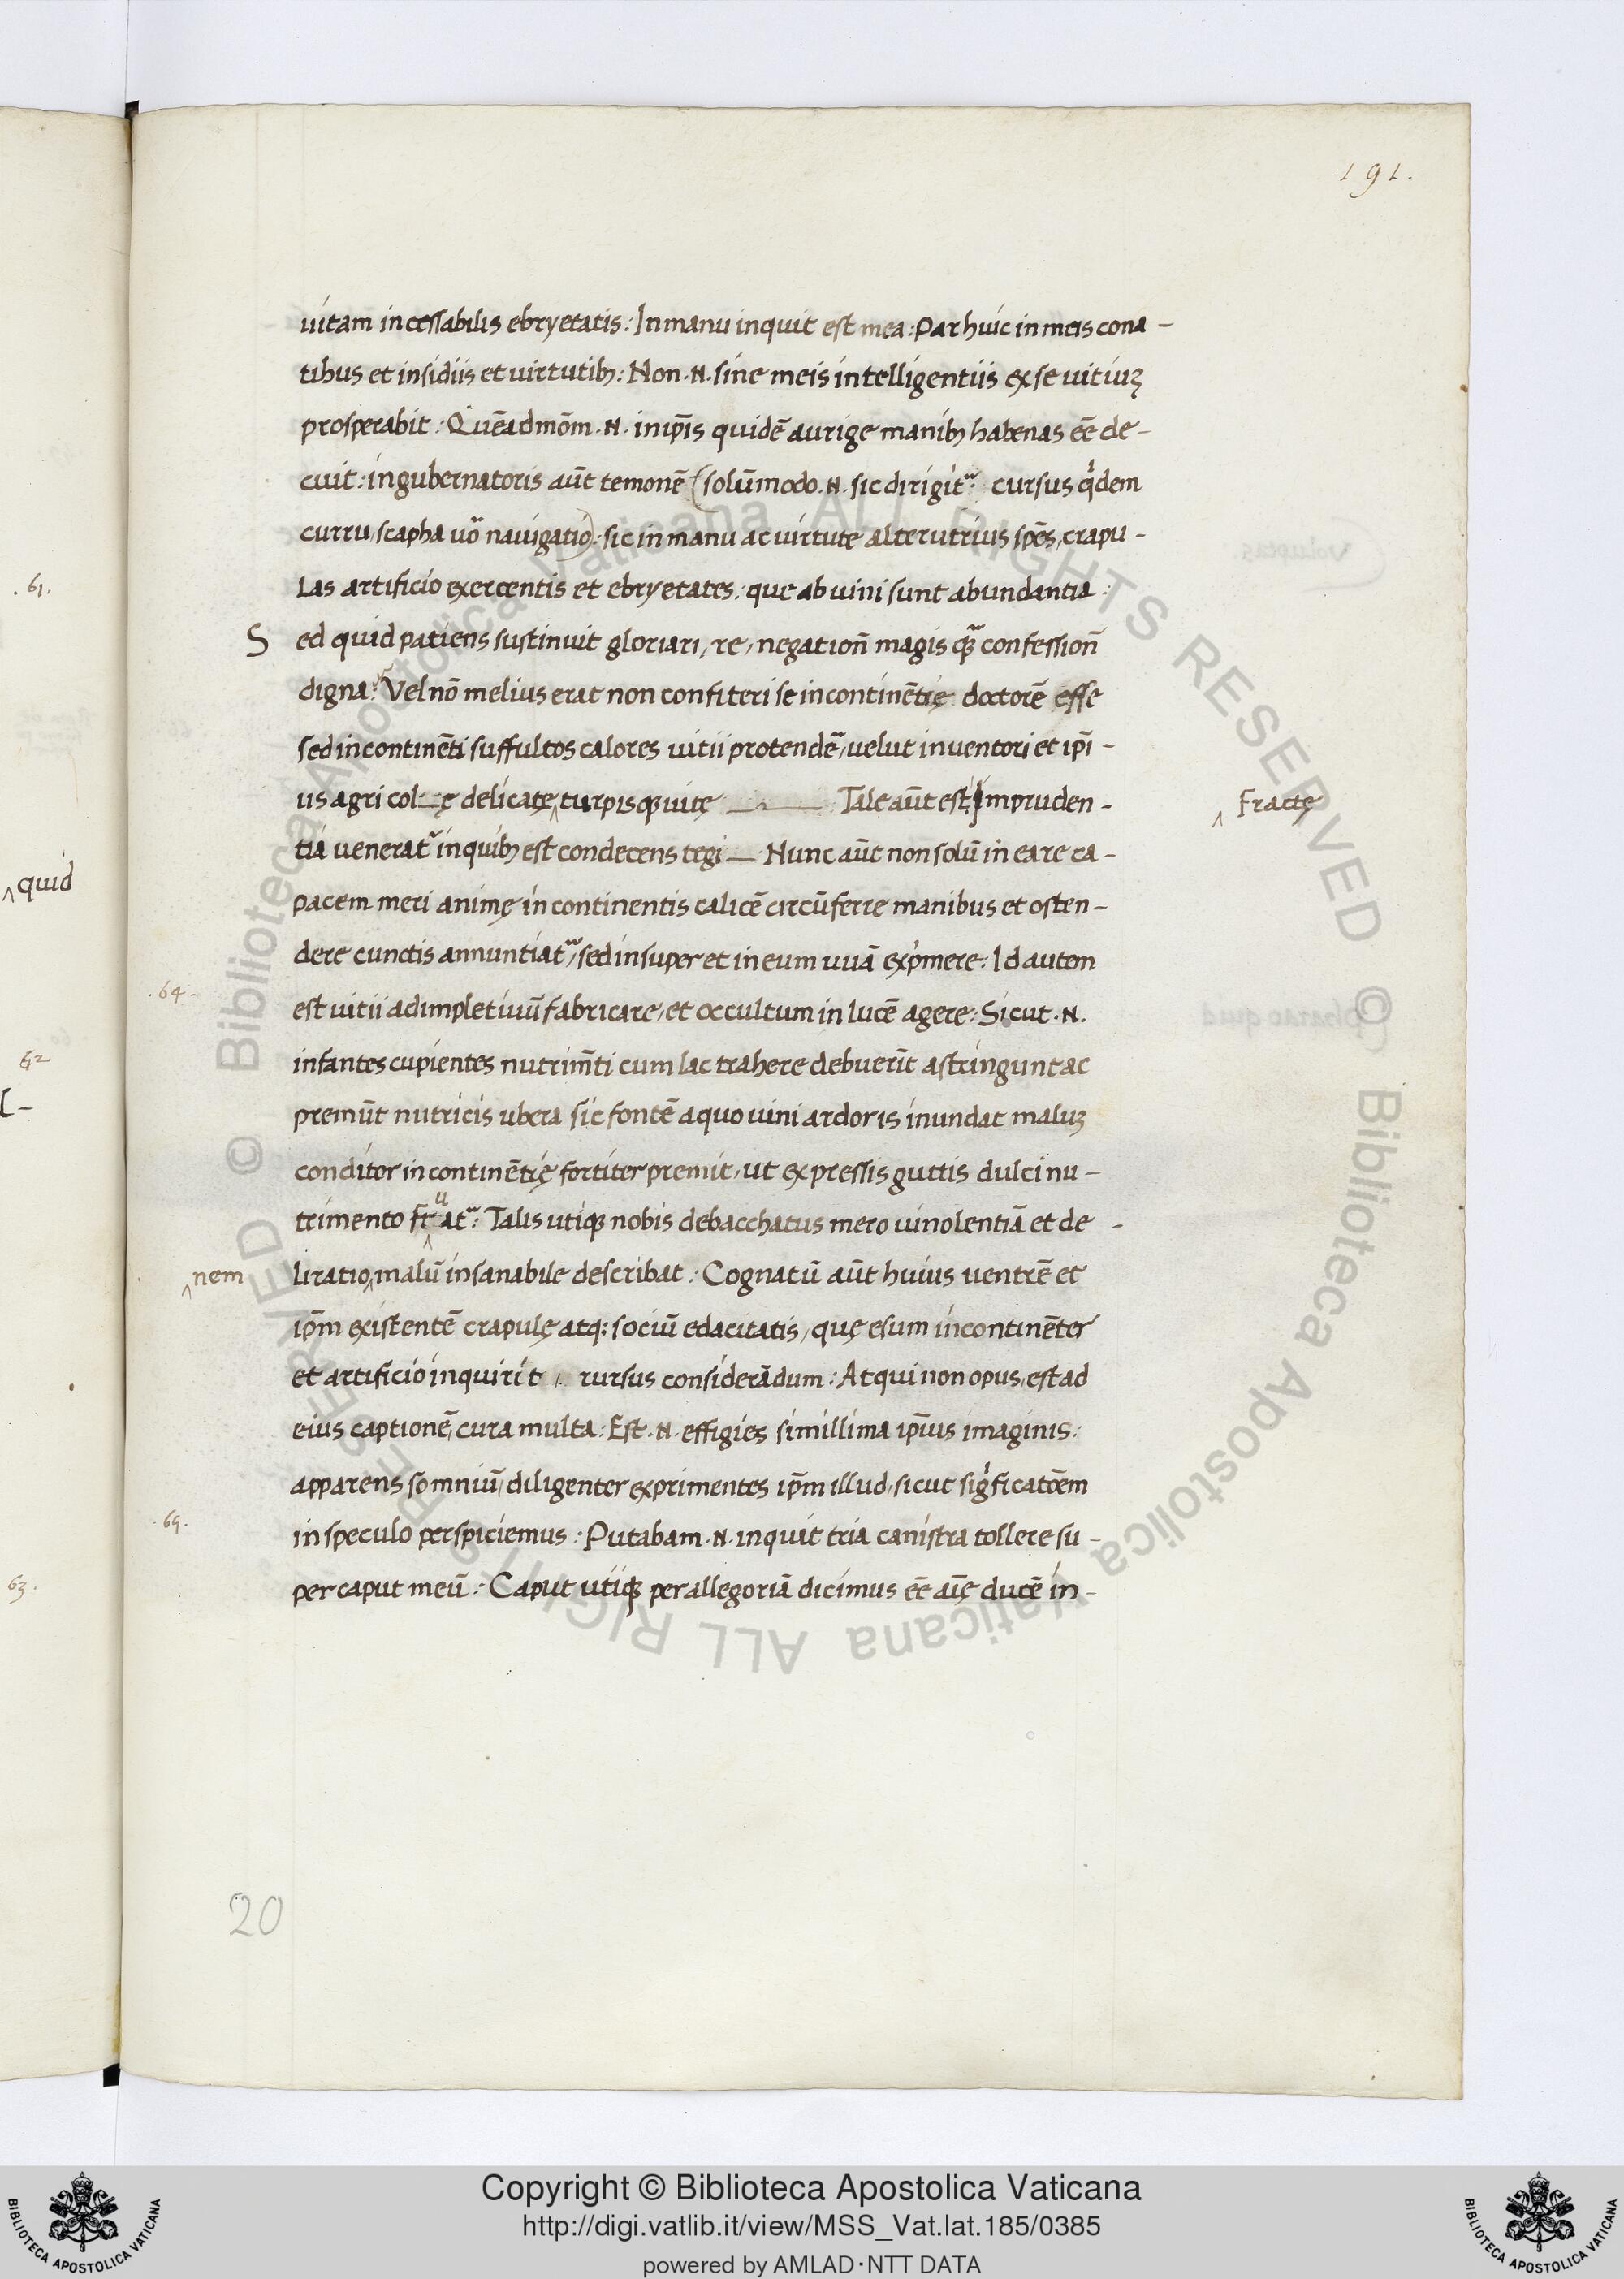 191.
uitam incessabilis ebryetatis: In manu inquit est mea: Par huic in meis cona-
tibus et insidiis et uirtutibꝫ: Non .N. sine meis intelligentiis ex se uitiuꝫ
prosperabit: Quēadmōm .N. in ip̄is quidē aurige manibꝫ habenas eē de-
cuit: in gubernatoris aūt temonē (solūmodo .N. sic dirigit᷑ cursus qⁱdem
curru, scapha uō nauigatio): sic in manu ac uirtute alterutrius sp̄es, crapu-
.61.
las artificio exercentis et ebryetates: que ab uini sunt abundantia:
Sed quid patiens sustinuit gloriari, re, negation̄ magis qꝫ̄ confession̄
digna: Vel nō melius erat non confiteri se incontinētię doctorē esse
sed incontinēti suffultos calores uitii protendē, uelut inuentori et ip̄i-
us agri colę delicatę, ‸ turpisqꝫ uitę Tale aūt est, Impruden-
‸ fractę
tia uenerat᷑ in quibꝫ est condecens tegi — Nunc aūt non solū in ea re ca-
‸ quid
pacem meri animę incontinentis calicē circūferre manibus et osten-
dere cunctis annuntiat᷑, sed insuper et in eum uuā expⁱmere: Id autem
.64.
est uitii adimpletiuū fabricare, et occultum in lucē agere: Sicut .N.
62
infantes cupientes nutrim̄ti cum lac trahere debuerīt astringunt ac
premūt nutricis ubera sic fontē a quo uini ardoris inundat maluꝫ
conditor incontinētię fortiter premit, ut expressis guttis dulci nu-
trimento fruat᷑: Talis utiqꝫ nobis debacchatus mero uinolentiā et de-
‸ nem
liratio ‸ malū insanabile describat: Cognatū aūt huius uentrē et
ip̄m existentē crapulę atq: sociū edacitatis, quę esum incontinēter
et artificio inquirit, rursus considerādum: Atqui non opus, est ad
eius captionē, cura multa: Est .N. effigies simillima ip̄ius imaginis:
apparens somniū, diligenter exprimentes ip̄m illud, sicut sigⁱficatōem
.65.
in speculo perspiciemus: Putabam .N. inquit tria canistra tollere su-
63.
per caput meū: Caput utiqꝫ per allegoriā dicimus eē aīę ducē in-
20
© Biblioteca Apostolica Vaticana ALL RIGHTS RESERVED © Biblioteca Apostolica Vaticana ALL RIGHTS RESERVED
Copyright © Biblioteca Apostolica Vaticana
http://digi.vatlib.it/view/MSS_Vat.lat.185/0385
powered by AMLAD·NTT DATA
BIBLIOTECA APOSTOLICA VATICANA
BIBLIOTECA APOSTOLICA VATICANA